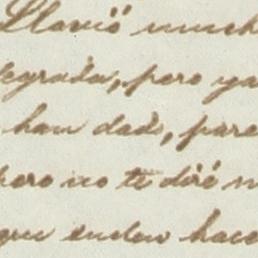 Llovió much
legrada, pero ya
han dado, pare
pero no te diré n
que suelen hace